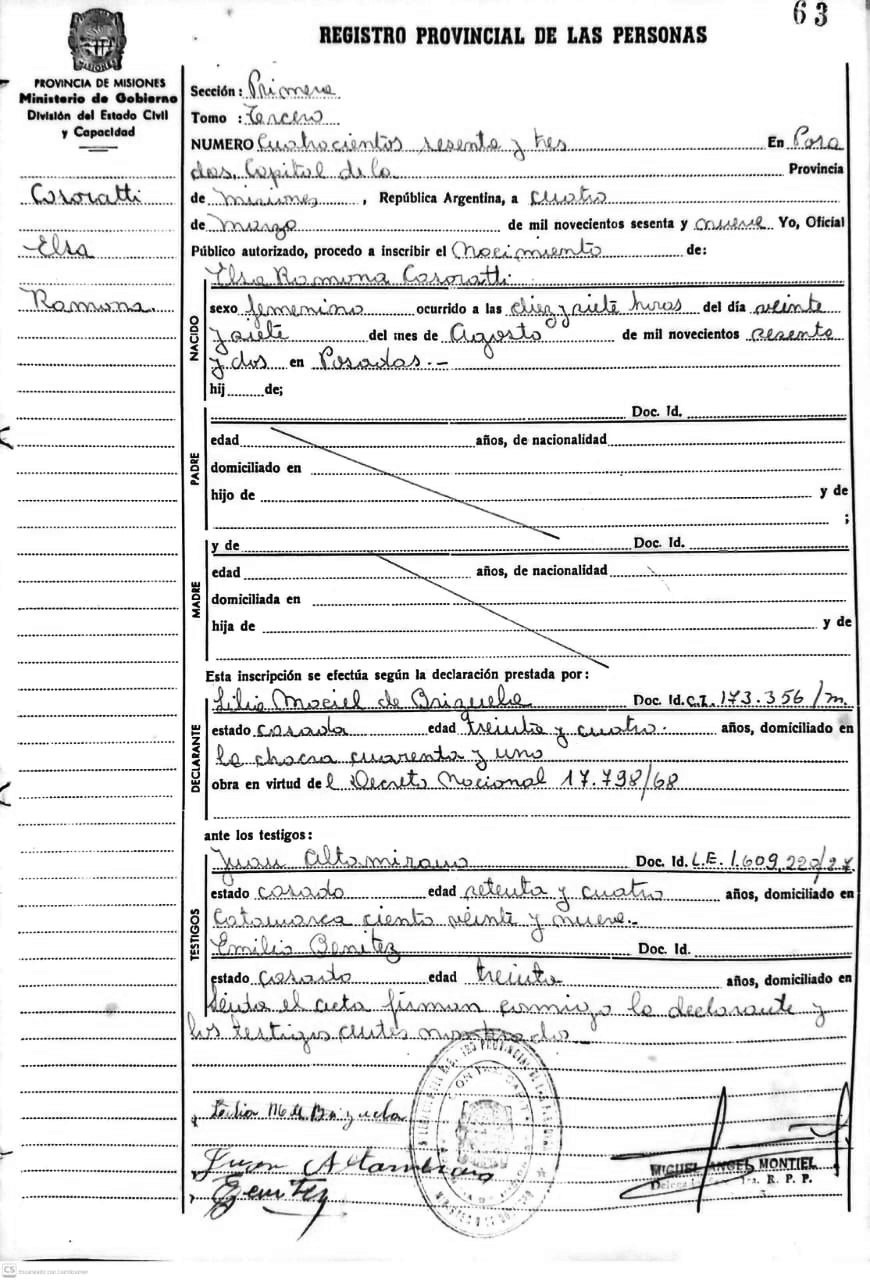 63
REGISTRO PROVINCIAL DE LAS PERSONAS
PROVINCIA DE MISIONES
Ministerio de Gobierno
División del Estado Civil
y Capacidad
Casoratti
Elsa
Ramona.
Sección: Primera
Tomo : Tercero
NUMERO Cuatrocientos sesenta y tres En Posa
das, Capital de la Provincia
de Misiones, República Argentina, a cuatro
de marzo de mil novecientos sesenta y nueve Yo, Oficial
Público autorizado, procedo a inscribir el Nacimiento de:
NACIDO
Elsa Ramona Casoratti
sexo femenino ocurrido a las diez y siete horas del día veinte
y siete del mes de Agosto de mil novecientos sesenta
y dos en Posadas.-
hij de;
PADRE
Doc. Id.
edad años, de nacionalidad
domiciliado en
hijo de y de
;
MADRE
y de Doc. Id.
edad años, de nacionalidad
domiciliada en
hija de y de
Esta inscripción se efectúa según la declaración prestada por:
DECLARANTE
Lilia Maciel de Brizuela Doc. Id. C.I. 173.356/m.
estado casada edad treinta y cuatro. años, domiciliado en
la chacra cuarenta y uno
obra en virtud del Decreto Nacional 17.798/68
ante los testigos:
TESTIGOS
Juan Altamirano Doc. Id. L.E. 1.609.220/27.
estado casado edad setenta y cuatro años, domiciliado en
Catamarca ciento veinte y nueve.-
Emilio Benitez Doc. Id.
estado casado edad treinta años, domiciliado en
Leída el acta firman conmigo la declarante y
los testigos antes nombrado
Juan Altamirano
Benitez
MIGUEL ANGEL MONTIEL
R. P. P.
CS